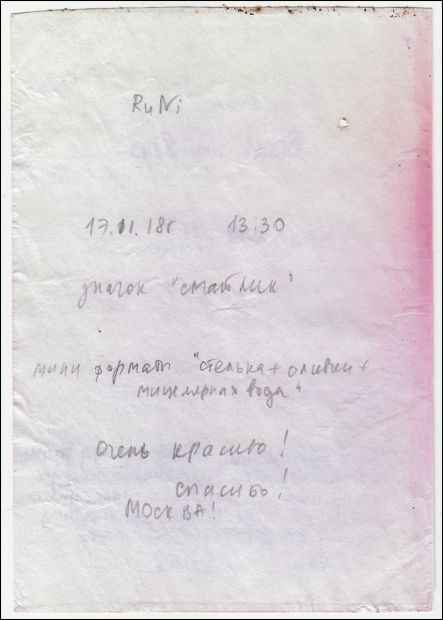 RuNi
17.11.18г 13:30
значок "смайлик"
мини форматы "стелька + оливки +
мицелярная вода"
Очень красиво!
спасибо!
МОСКВА!